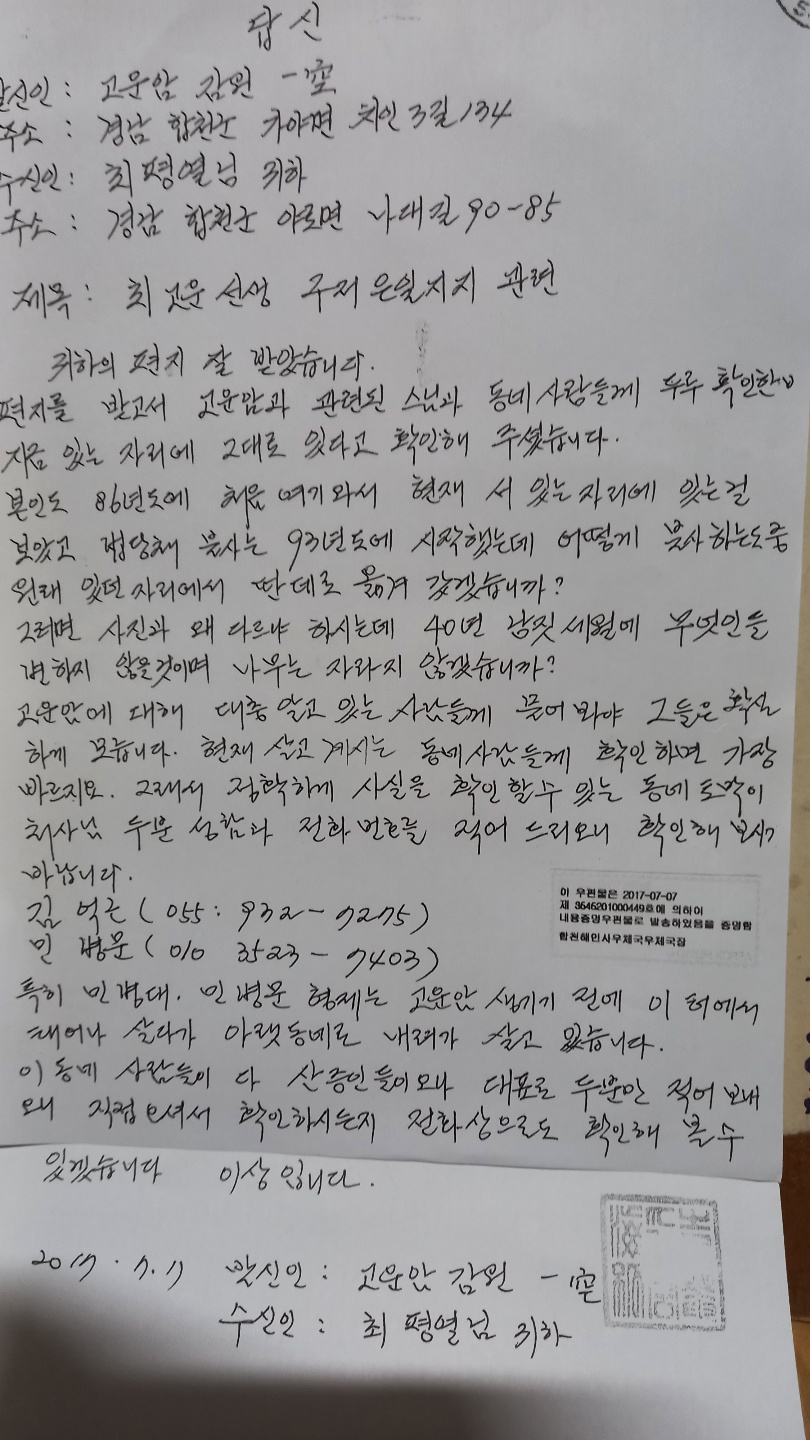 답신
발신인 : 고운암 감원 一空
주소 : 경남 합천군 가야면 치인3길 134
수신인 : 최평열님 귀하
주소 : 경남 합천군 야로면 나대길 90-85
제목 : 최고운 선생 구저 은일지지 관련
귀하의 편지 잘 받았습니다.
편지를 받고서 고운암과 관련된 스님과 동네사람들께 두루 확인한바
지금 있는 자리에 그대로 있다고 확인해 주셨습니다.
본인도 86년도에 처음 여기와서 현재 서 있는 자리에 있는걸
보았고 법당채 불사는 93년도에 시작했는데 어떻게 불사하는도중
원래 있던 자리에서 딴데로 옮겨 갔겠습니까?
그러면 사진과 왜 다르냐 하시는데 40년 남짓 세월에 무엇인들
변하지 않을것이며 나무는 자라지 않겠습니까?
고운암에 대해 대충 알고 있는 사람들께 물어봐야 그들은 확실
하게 모릅니다. 현재 살고 계시는 동네사람들께 확인하면 가장
빠르지요. 그래서 정확하게 사실을 확인할수 있는 동네 토박이
처사님 두분 성함과 전화번호를 적어 드리오니 확인해 보시기
바랍니다.
김 억근 ( 055 : 932 - 7275 )
민 병문 ( 010 3523 - 7403 )
이 우편물은 2017-07-07
제 3646201000449호에 의하여
내용증명우편물로 발송하였음을 증명함
합천해인사우체국우체국장
특히 민병대. 민병문 형제는 고운암 생기기 전에 이 터에서
태어나 살다가 아랫동네로 내려가 살고 있습니다.
이 동네 사람들이 다 산증인들이오나 대표로 두분만 적어 보내
오니 직접 오셔서 확인하시든지 전화상으로도 확인해 볼 수
있겠습니다 이상입니다.
2017 . 7. 7
발신인 : 고운암 감원 一空
수신인 : 최평열님 귀하